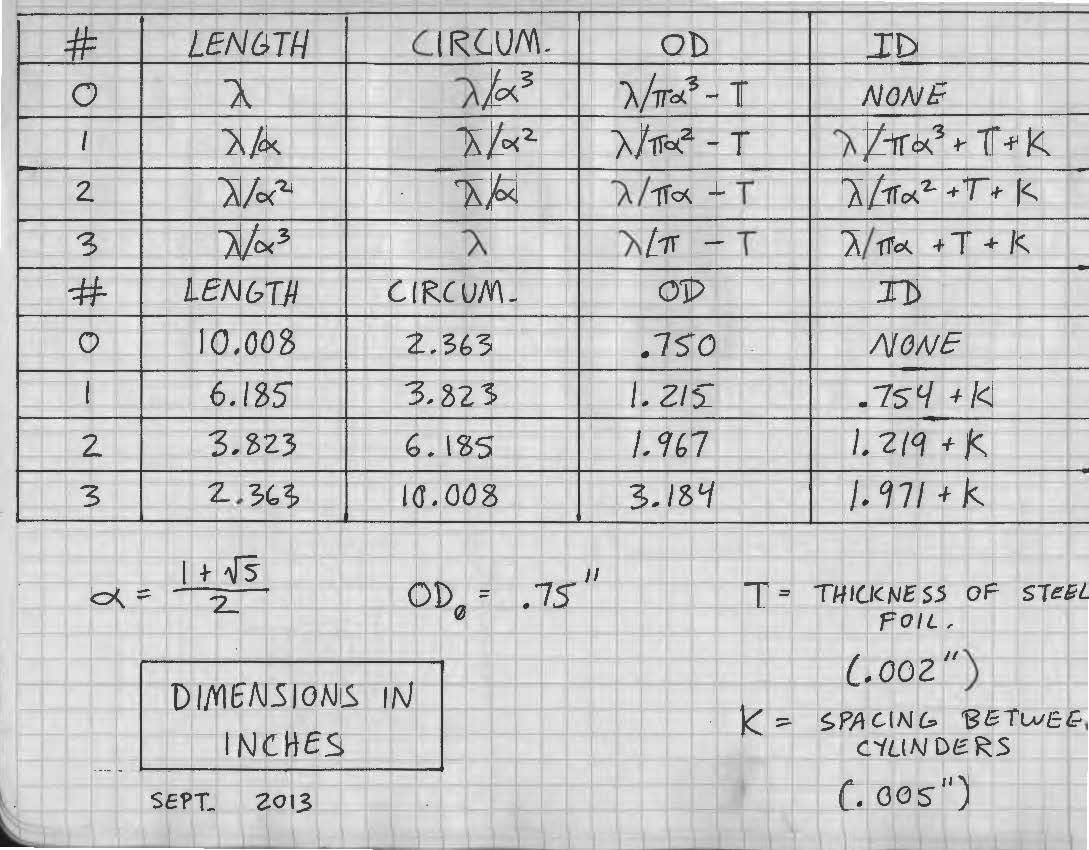 # LENGTH CIRCUM. OD ID
0 λ λ/α³ λ/πα³ - T NONE
1 λ/α λ/α² λ/πα² - T λ/πα³ + T + K
2 λ/α² λ/α λ/πα - T λ/πα² + T + K
3 λ/α³ λ λ/π - T λ/πα + T + K
# LENGTH CIRCUM. OD ID
0 10.008 2.363 .750 NONE
1 6.185 3.823 1.215 .754 + K
2 3.823 6.185 1.967 1.219 + K
3 2.363 10.008 3.184 1.971 + K
α = (1 + √5)/2 OD₀ = .75" T = THICKNESS OF STEEL
FOIL.
(.002")
DIMENSIONS IN
INCHES
K = SPACING BETWEE
CYLINDERS
(.005")
SEPT. 2013